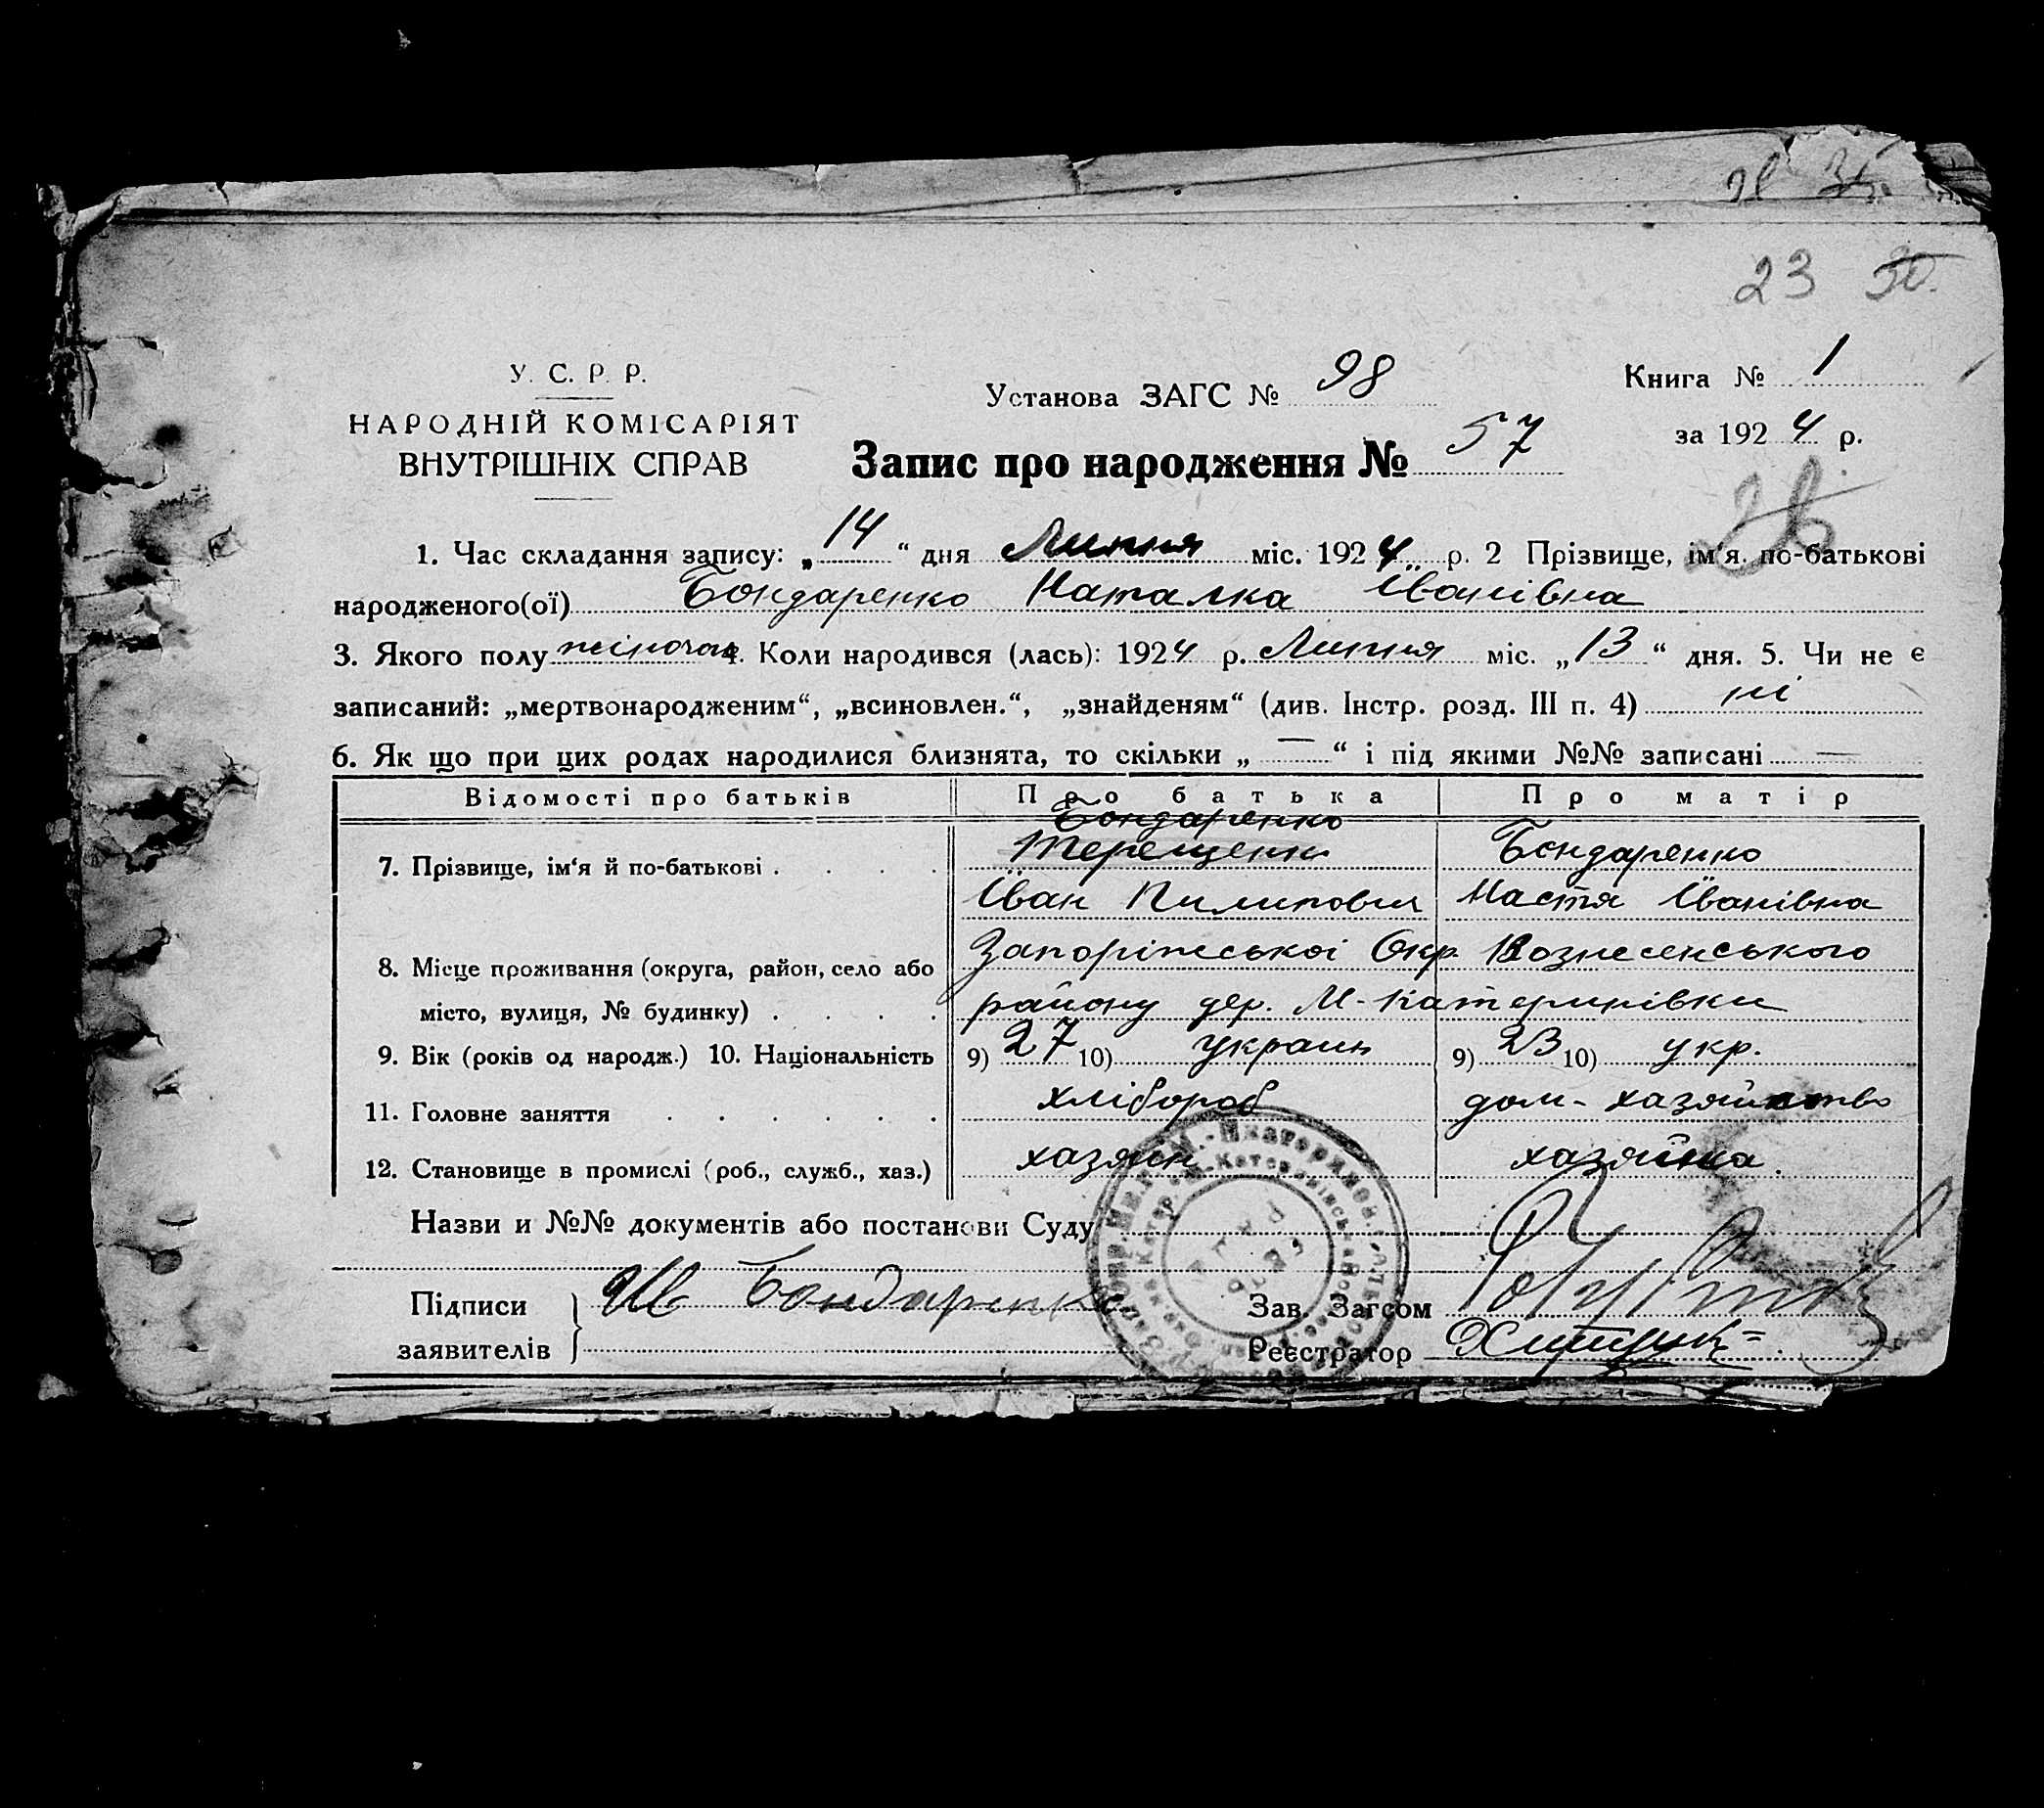 23 30.
У. С. Р. Р.
НАРОДНІЙ КОМІСАРІЯТ
ВНУТРІШНІХ СПРАВ
Установа ЗАГС № 98
Книга № 1
за 1924 р.
Запис про народження № 57
1. Час складання запису: „14“ дня Липня міс. 1924 р. 2 Прізвище, ім'я, по-батькові
народженого(ої) Бондаренко Наталка Іванівна
3. Якого полу жіночої 4. Коли народився (лась): 1924 р. Липня міс. „13“ дня. 5. Чи не є
записаний: „мертвонародженим“, „всиновлен.“, „знайденям“ (див. Інстр. розд. III п. 4) ні
6. Як що при цих родах народилися близнята, то скільки „—“ і під якими №№ записані —
Відомості про батьків Про батька Про матір
Бондаренко
7. Прізвище, ім'я й по-батькові . . . . Терещенко Бондаренко
Іван Пилипович Настя Іванівна
8. Місце проживання (округа, район, село або Запоріжської Окр. Вознесенського
місто, вулиця, № будинку) . . . . району дер. М-Катеринівки
9. Вік (років од народж.) 10. Національність 9) 27 10) україн 9) 23 10) укр.
11. Головне заняття . . . . . . хлібороб дом-хазяйство
12. Становище в промислі (роб., служб., хаз.) хазяїн хазяйка.
Назви и №№ документів або постанови Суду
Підписи Ив Бондаренко Зав. Загсом
заявителів Реєстратор